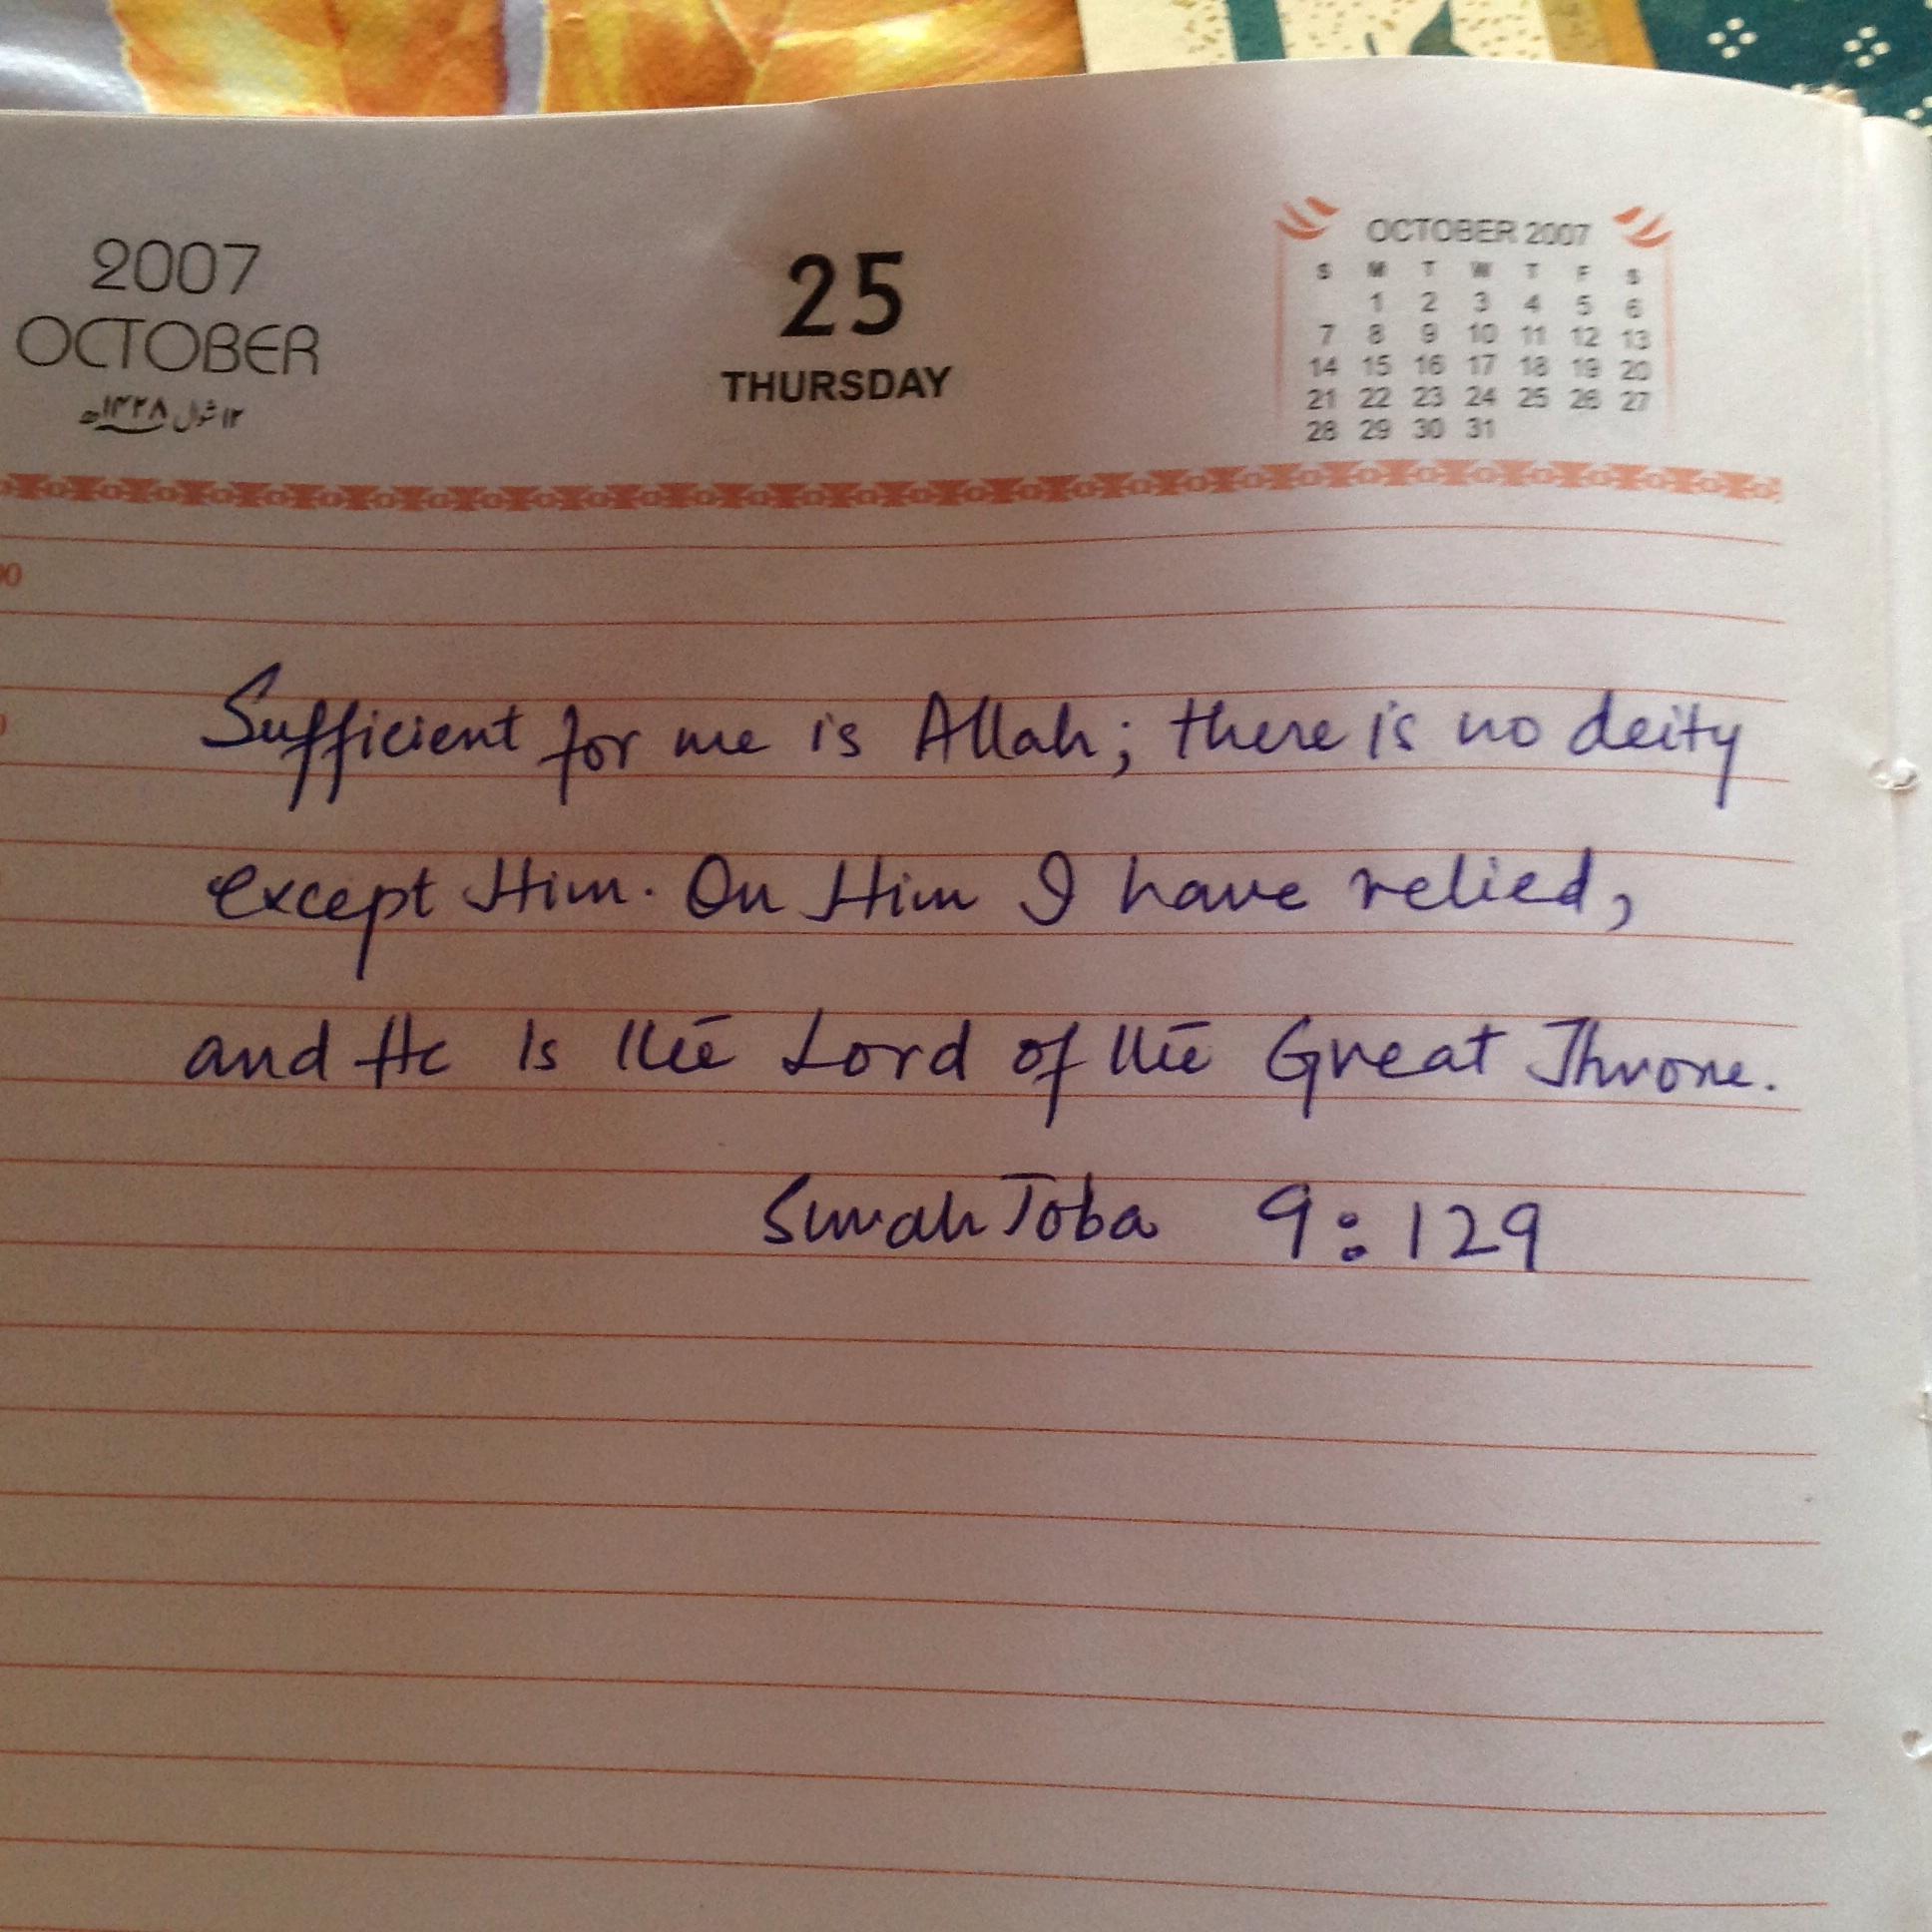 2007
OCTOBER
۱۲ شوال ۱۴۲۸ھ
25
THURSDAY
OCTOBER 2007
S M T W T F S
1 2 3 4 5 6
7 8 9 10 11 12 13
14 15 16 17 18 19 20
21 22 23 24 25 26 27
28 29 30 31
Sufficient for me is Allah; there is no deity
except Him. On Him I have relied,
and He is the Lord of the Great Throne.
Surah Toba 9:129